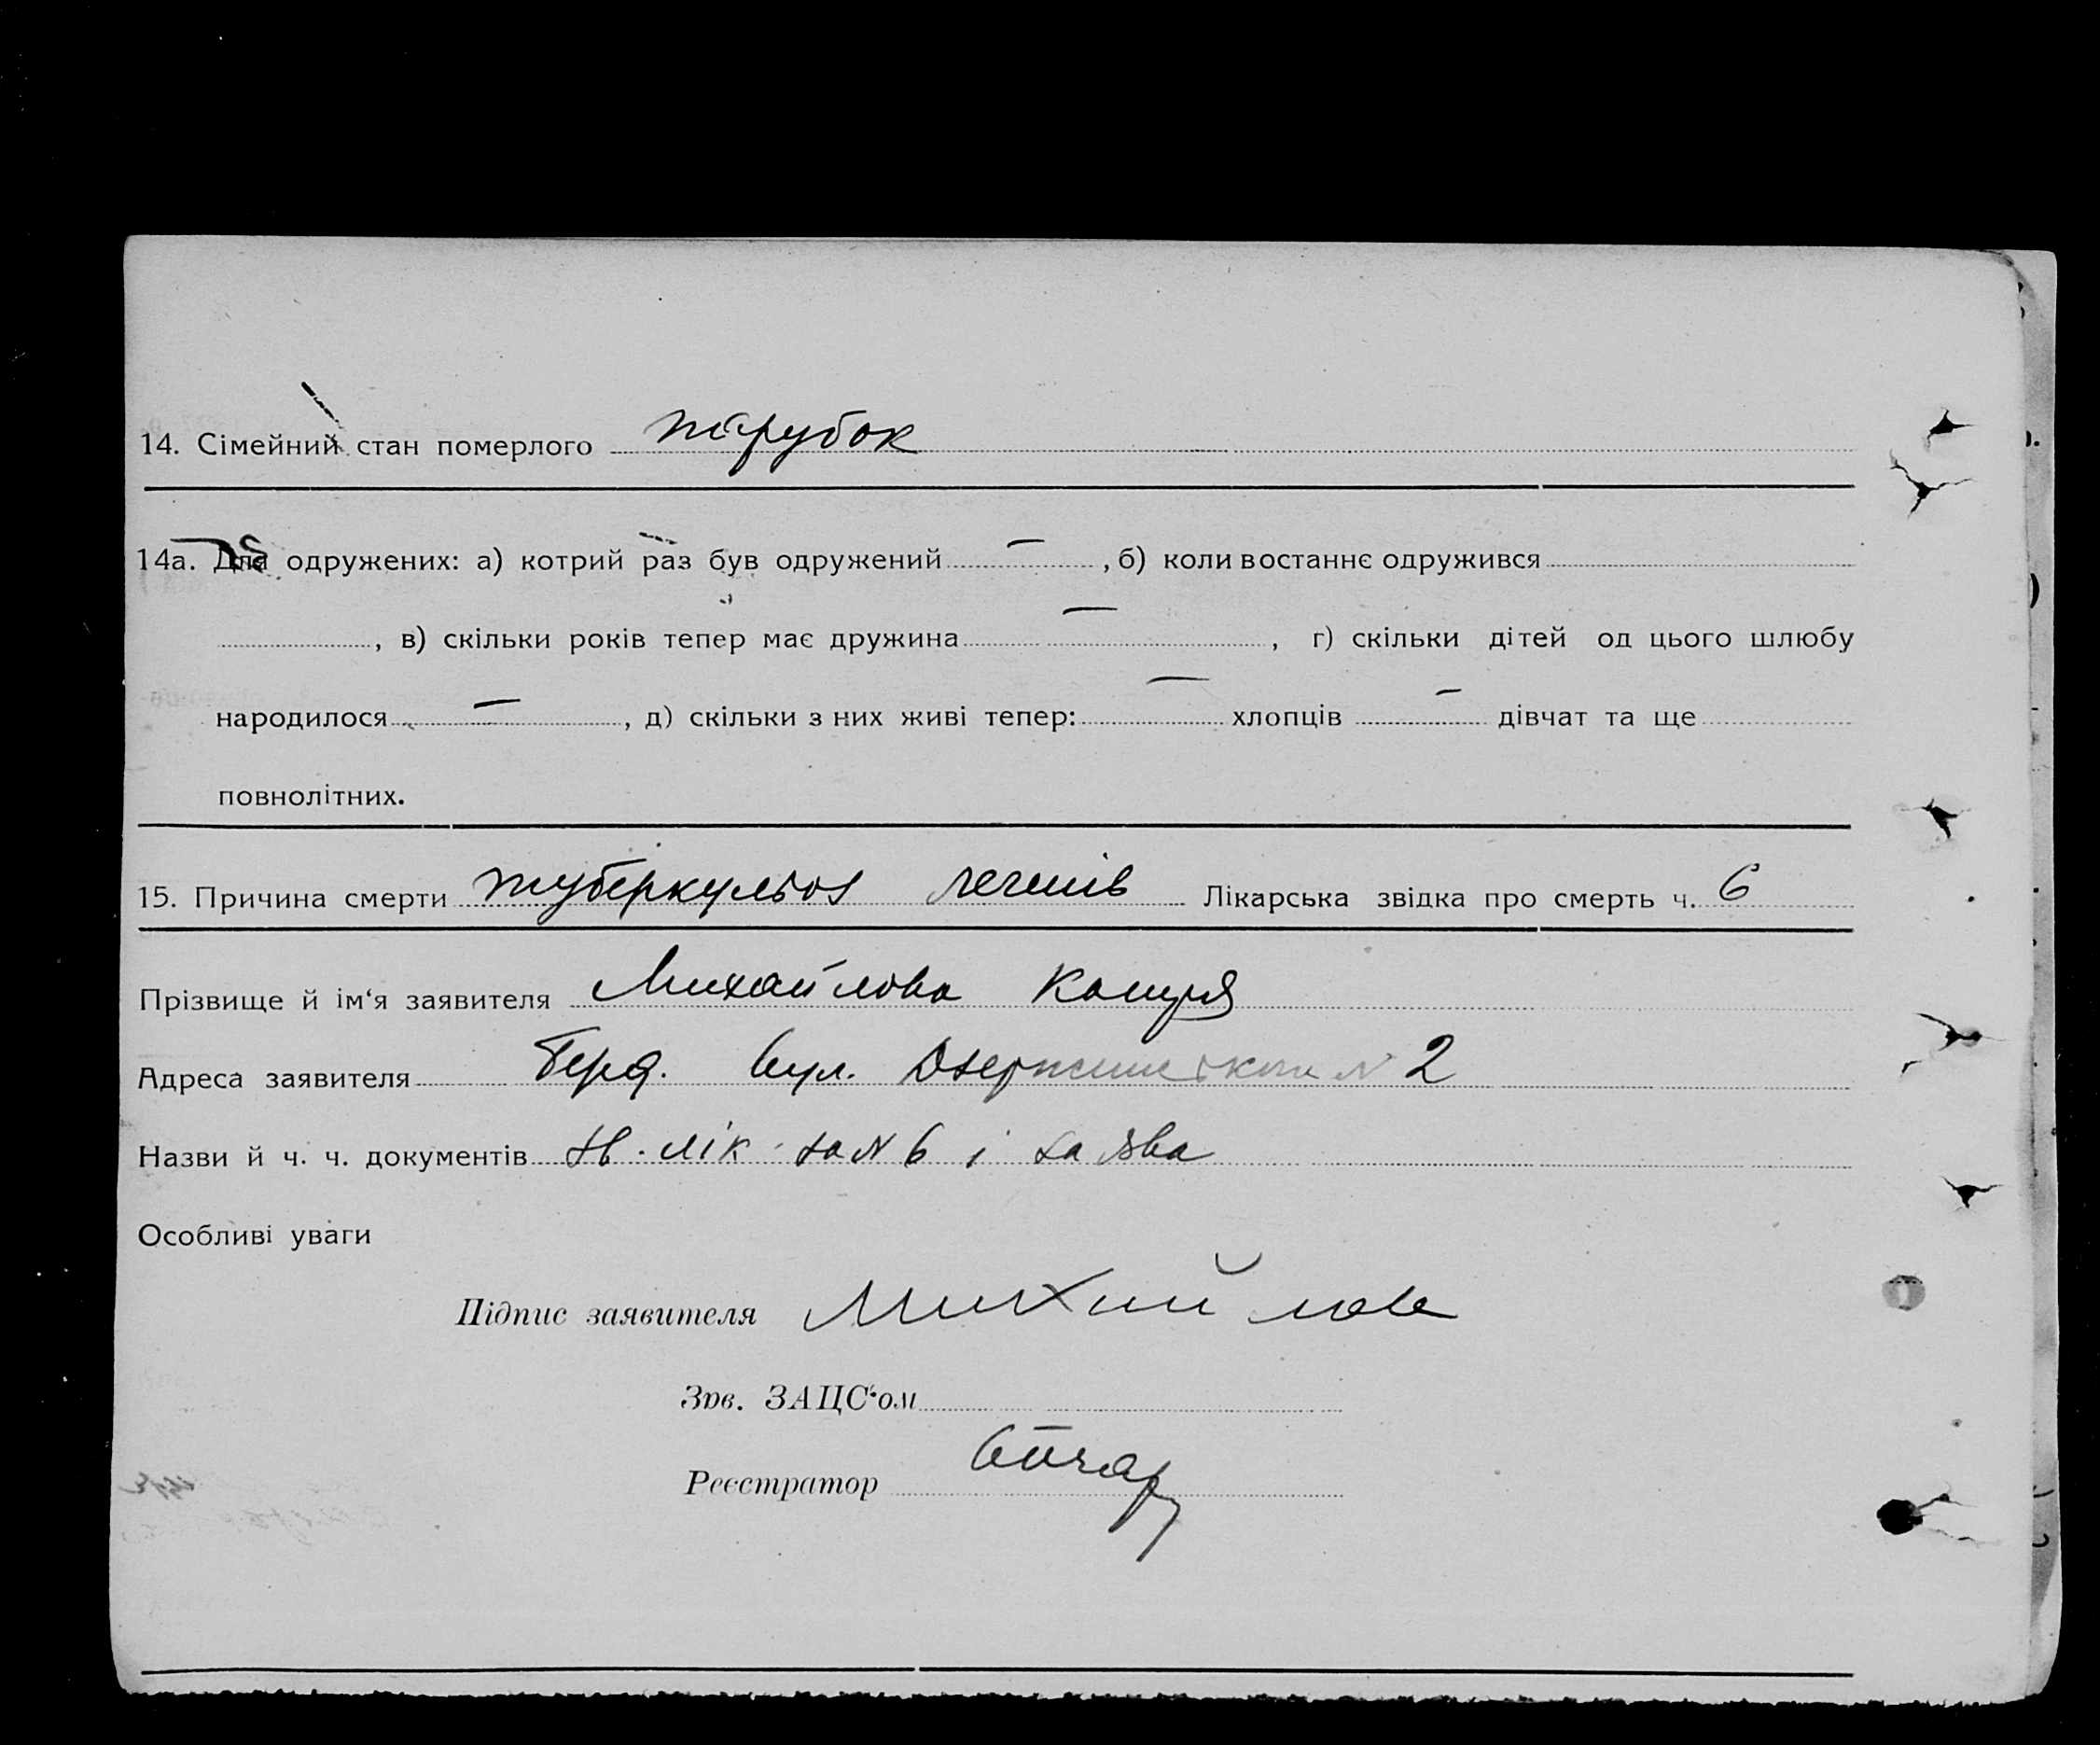 14. Сімейний стан померлого парубок
14а. Для одружених: а) котрий раз був одружений —, б) коли востаннє одружився
, в) скільки років тепер має дружина —, г) скільки дітей од цього шлюбу
народилося —, д) скільки з них живі тепер: — хлопців — дівчат та ще
повнолітних.
15. Причина смерти туберкульоз легенів Лікарська звідка про смерть ч. 6
Прізвище й ім‘я заявителя Михайлова
Адреса заявителя Берд. вул. Дзержинського № 2
Назви й ч. ч. документів зв. лік. за № 6 і заява
Особливі уваги
Підпис заявителя Михайлова
Зав. ЗАЦС‘ом
Реєстратор